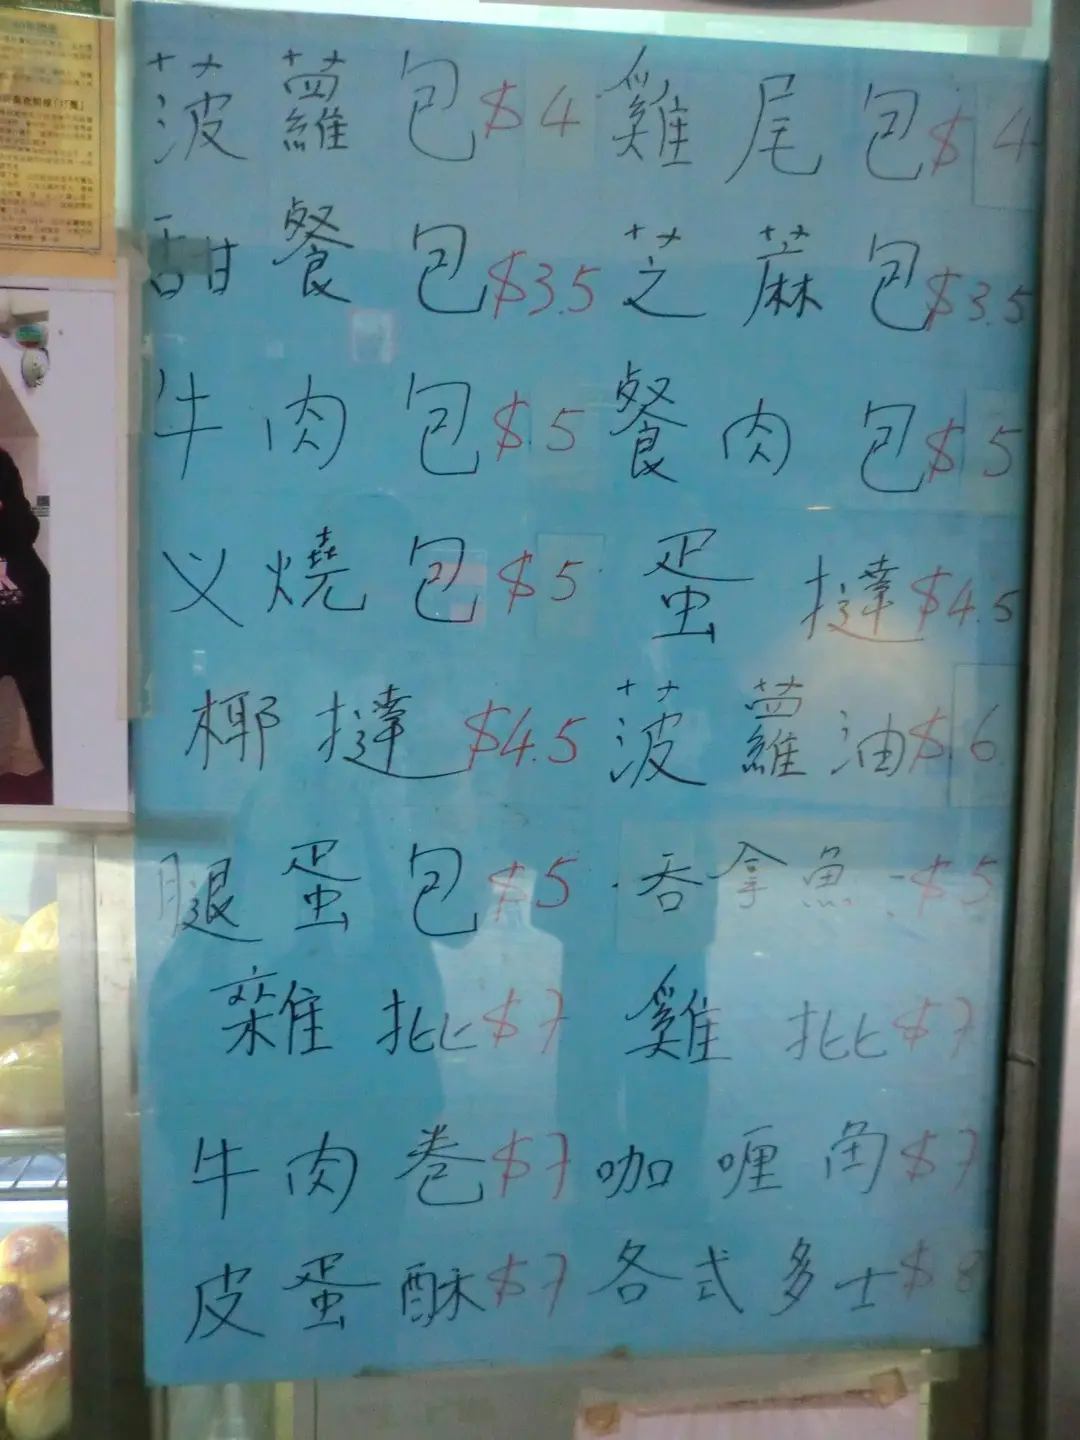 菠蘿包$4 雞尾包$4
甜餐包$3.5 芝蔴包$3.5
牛肉包$5 餐肉包$5
义燒包$5 蛋撻$4.5
椰撻$4.5 菠蘿油$6
腿蛋包$5 吞拿魚$5
雜批$7 雞批$7
牛肉巻$7 咖喱角$7
皮蛋酥$7 各式多士$8